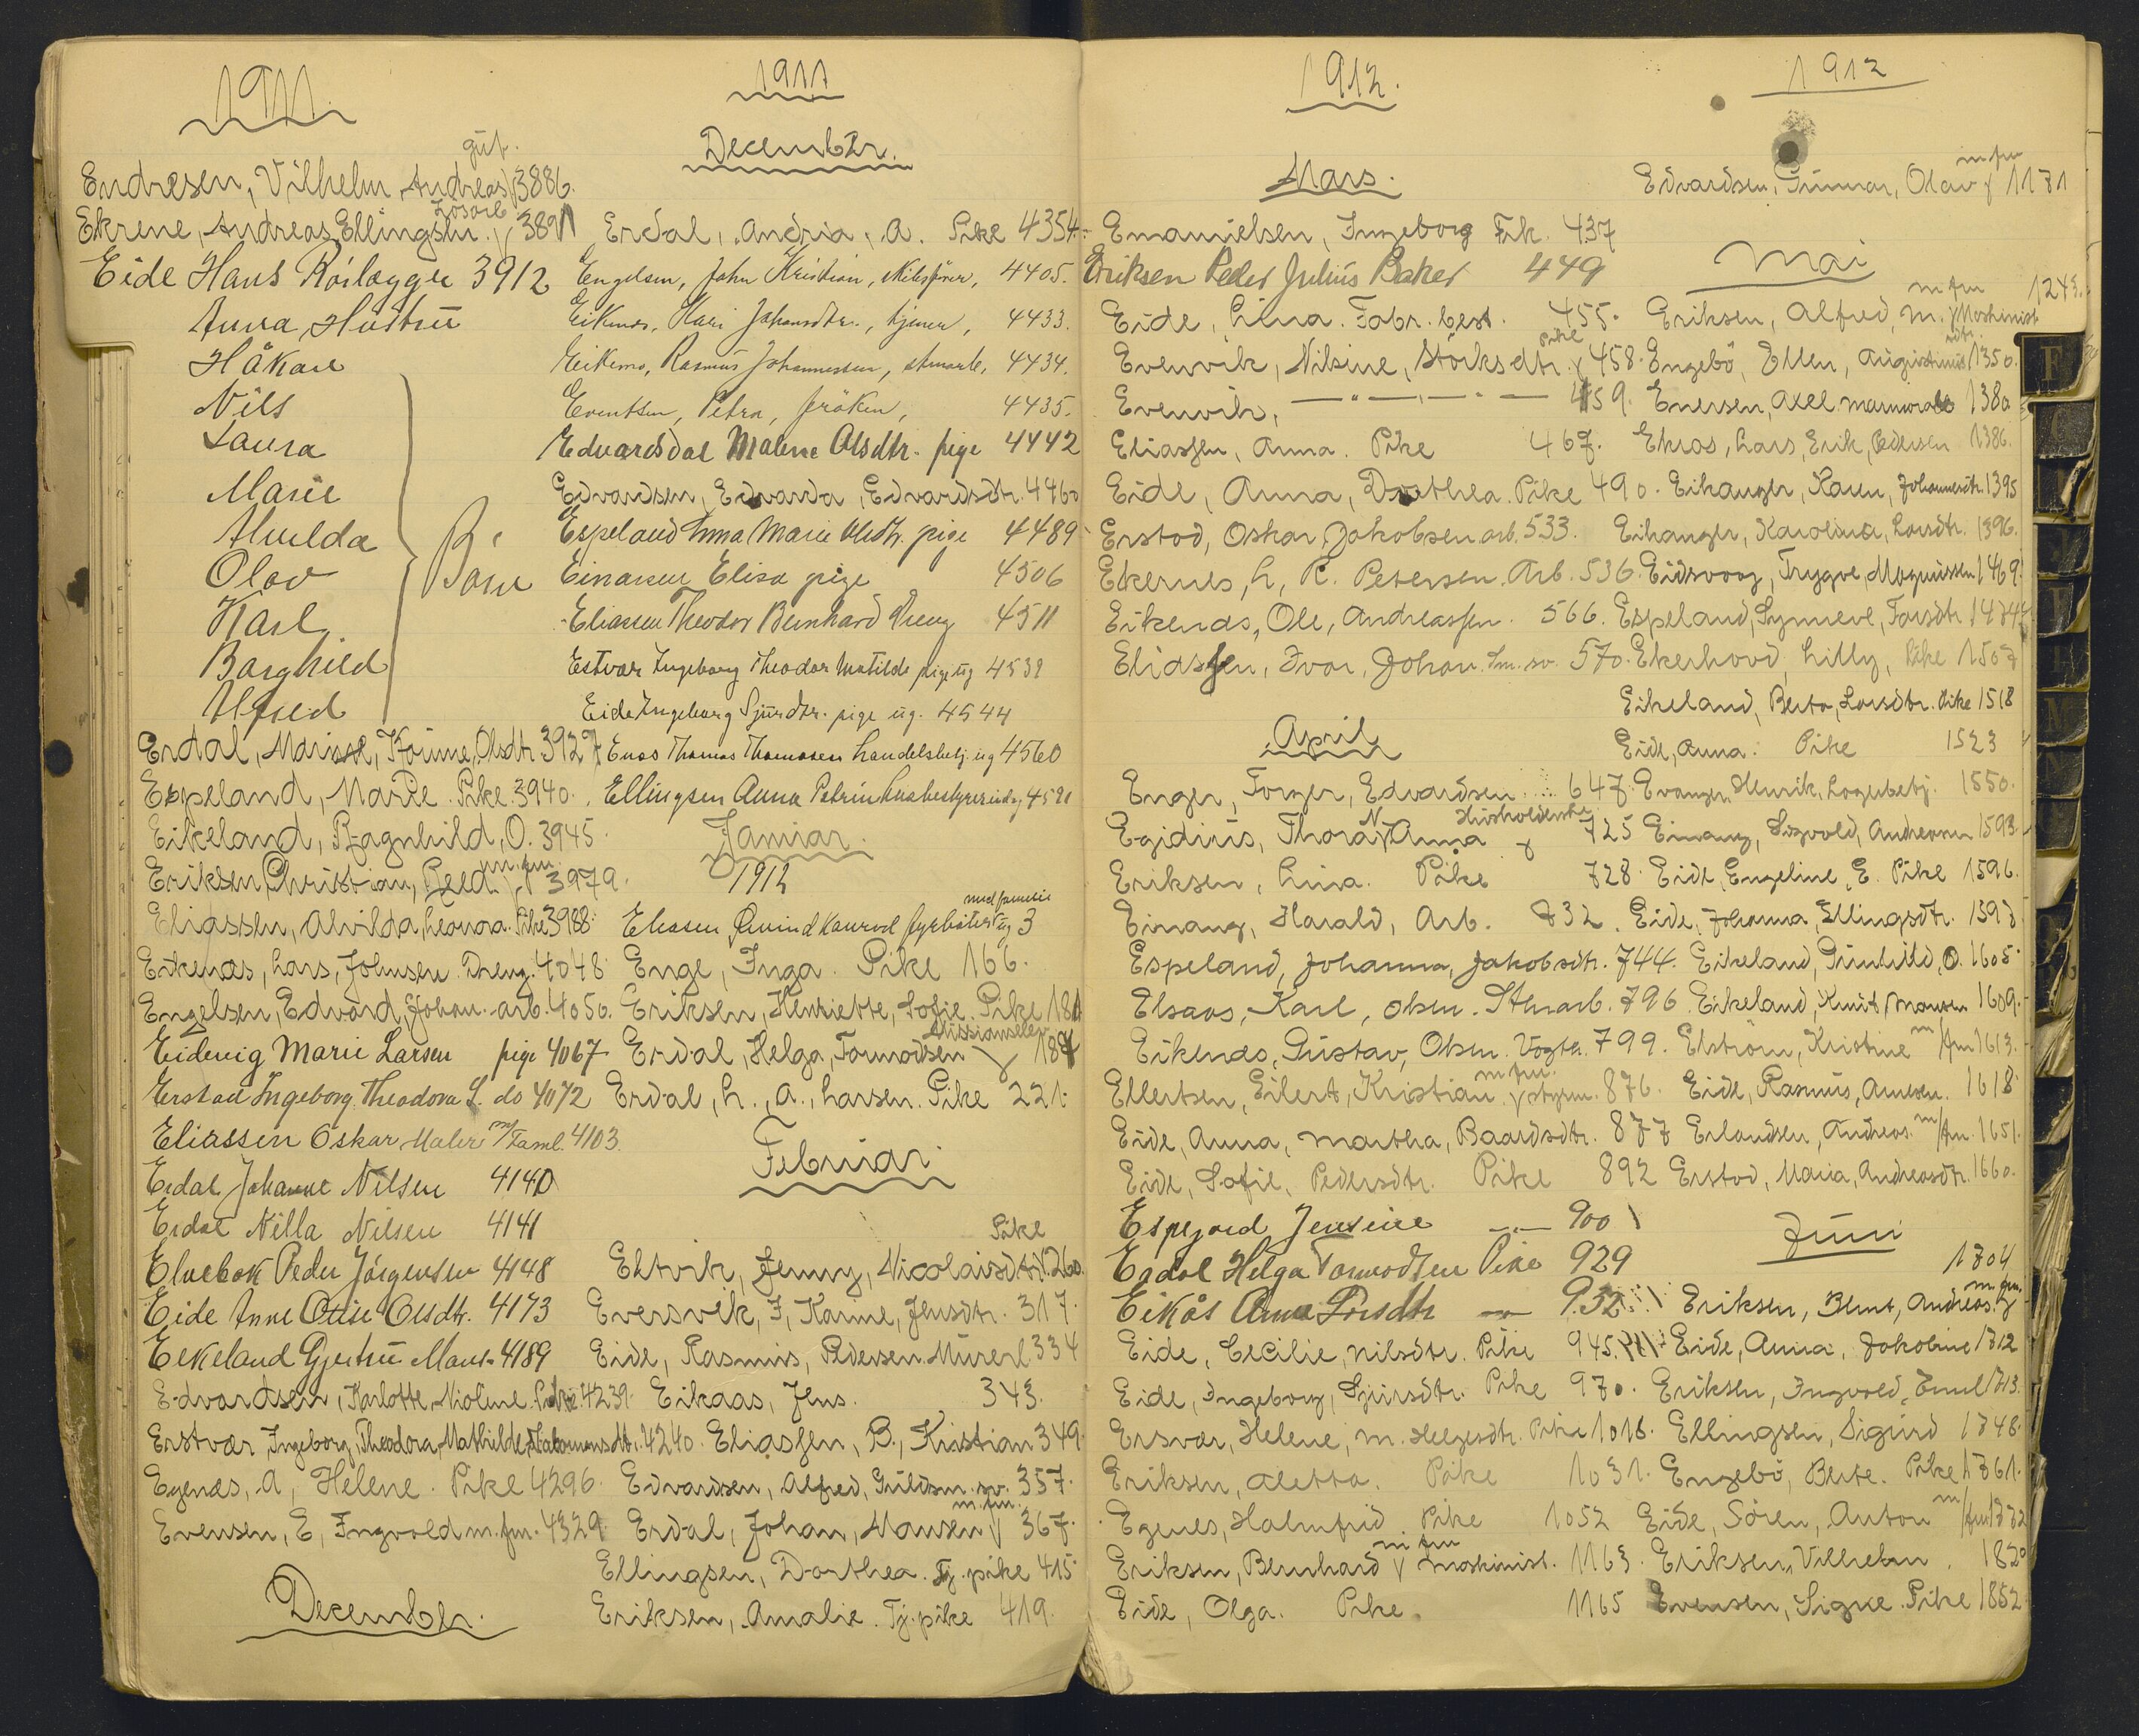 1911.
gift.
Endresen, Vilhelm Andreas 3886.
Løsarb
Ekrene, Andreas Ellingsen. 3891
Eide Hans Rörlægger 3912
Anna Hustru
Håkon
Nils
Laura
Marie
Alvilda
Olav
Karl
Borghild
Alfred
Barn
Erdal, Marie, Karine, Olsdtr 3927
Espeland, Marie. Pike. 3940.
Eikeland, Ragnhild, O. 3945.
m. fm.
Eriksen, Christian, Reed. 3979.
Eliassen, Alvilda, Leonora. Pike 3988.
Eikenæs, Lars, Johnsen. Dreng. 4048
Engelsen, Edvard, Johan. arb. 4050.
Eidevig Marie Larsen pige 4067
Erstad Ingeborg Theodora L. do 4072
Eliassen Oskar Maler m/Faml. 4103.
Erdal Johanne Nilsen 4140
Erdal Nilla Nilsen 4141
Elvebak Peder Jörgensen 4148
Eide Anne Otise Olsdtr. 4173
Eekeland Gjertru Mons. 4189
Edvardsen, Karlotte, Nioline. Pike. 4239.
Erstvær, Ingeborg, Theodora, Mathilde, 4240.
Egenæs, A, Helene. Pike 4296.
Evensen, E, Ingvald m. fm. 4329
December.
1911
December.
Erdal, Andria, A. Pike 4354.
Engelsen, John Kristian, 4405.
Eikemo, Kari Johansdtr., tjener, 4433.
Eikemo, Rasmus Johannessen, 4434.
Eventsen, Petra, fröken, 4435.
Edvardsdal Malene Olsdtr. pige 4442
Edvardsen, Edvarda, Edvardsdtr. 4460
Espeland Anna Marie Olsdtr. pige 4489
Einarsen Elisa pige 4506
Eliassen Theodor Bernhard Dreng 4511
Estvær Ingeborg Theodor Matilde pige ug 4538
Eide Ingeborg Sjurdtr. pige ug. 4544
Enos Thomas Thomasen handelsbetj. ug 4560
Ellingsen Anna Petrin husbestyrerinde 4591
Januar.
1912
med familie
Eliasen Eivind Konrad fyrböter ug 3
Enge, Inga. Pike 166.
Eriksen, Henriette, Sofie. Pike 181
Missionselev
Erdal, Helga, Tormodsen 184
Erdal, L., A., Larsen. Pike 221.
Februar.
Pike
Ektvik, Jenny, Nicolaisdtr. 260.
Eversvik, J, Karine, Jensdtr. 317.
Eide, Rasmus, Pedersen. Murerl 334
Eikaas, Jens. 343.
Eliassen, B., Kristian 349.
Edvardsen, Alfred, Guldsm. sv. 357.
m. fm.
Erdal, Johan, Monsen 367.
Ellingsen, Dorthea. Tj. pike 415.
Eriksen, Amalie. Tj. pike 419.
1912.
Mars.
Emanuelsen, Ingeborg Frk. 437
Eriksen Peder Julius Baker 449
Eide, Lina. Fabr. best. 455.
Pike
Evenvik, Nilsine, Störksdtr. 458.
Evenvik, — " — " — 459.
Eliassen, Anna. Pike 467.
Eide, Anna, Dorthea. Pike 490.
Erstad, Oskar, Jakobsen arb. 533.
Ekernes, L, R. Petersen. Arb. 536.
Eikenæs, Ole, Andreassen. 566.
Eliassen, Ivar, Johan. Sm. sv. 570.
April
Enger, Torger, Edvardsen 647.
Husholderske
Egidius, Thora N. Anna 725
Eriksen, Lina. Pike 728.
Einang, Harald, Arb. 732.
Espeland, Johanna, Jakobsdtr. 744.
Elsaas, Karl, Olsen. Stenarb. 796.
Eikenæs, Gustav, Olsen. Vogtn. 799.
m fm.
Ellertsen, Eilert, Kristian. styrm. 876.
Eide, Anna, Martha, Baardsdtr. 877
Eide, Sofie, Pedersdtr. Pike 892
Espegard Jensine — " — 900
Erdal Helga Tormodsen Pike 929
Eikås Anna Larsdtr — " — 932
Eide, Cecilie, Nilsdtr. Pike 945.
Eide, Ingeborg, Sjursdtr. Pike 970.
Ersvær, Helene, M. Helgesdtr. Pike 1018.
Eriksen, Aletta. Pike 1031.
Egenes, Halmfrid. Pike 1052
m fm
Eriksen, Bernhard maskinist. 1163
Eide, Olga. Pike. 1165
1912
m fm
Edvardsen, Gunnar, Olav 1171
Mai
m fm 1243.
Eriksen, Alfred, M. Maskinist
Engebö, Ellen, Augustinusdtr. 1350.
Enersen, Axel 1380
Ekros, Lars, Erik, Pedersen 1386.
Eikanger, Karen, Johannesdtr. 1395
Eikanger, Karolina, Larsdtr. 1396.
Eidsvaag, Trygve, Magnussen 1469.
Espeland, Synneve, Larsdtr. 1474
Ekerhovd, Lilly, Pike 1507
Eikeland, Berta, Larsdtr. Pike 1518
Eide, Anna. Pike 1523
Evanger, Henrik, Lagerbetj. 1550.
Einang, Sigvald, Andreasen 1593.
Eide, Engeline, E. Pike 1596.
Eide, Johanna, Ellingsdtr. 1597
Eikeland, Gunhild, O. 1605.
Eikeland, Knut, Monsen 1609.
Elström, Kristine m/fm 1613.
Eide, Rasmus, Arnesen. 1618.
Erlandsen, Andreas. m/fm. 1651.
Erstad, Maria, Andreasdtr. 1660.
Juni
1704
m. fm.
Eriksen, Bernt, Andreas.
Eide, Anna, Jakobine 1712
Eriksen, Ingvald, Emil 1713.
Ellingsen, Sigurd 1748.
Engebö, Berte. Pike 1761.
Eide, Sören, Anton m/fm 1772
Eriksen, Vilhelm. 1820
Evensen, Signe. Pike 1852
F
G
J
M